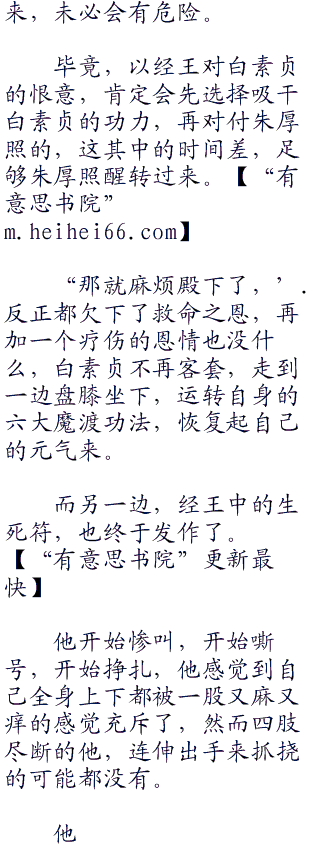 来，未必会有危险。
毕竟，以经王对白素贞
的恨意，肯定会先选择吸干
白素贞的功力，再对付朱厚
照的，这其中的时间差，足
够朱厚照醒转过来。【“有
意思书院”
m.heihei66.com】
“那就麻烦殿下了，’.
反正都欠下了救命之恩，再
加一个疗伤的恩情也没什
么，白素贞不再客套，走到
一边盘膝坐下，运转自身的
六大魔渡功法，恢复起自己
的元气来。
而另一边，经王中的生
死符，也终于发作了。
【“有意思书院”更新最
快】
他开始惨叫，开始嘶
号，开始挣扎，他感觉到自
己全身上下都被一股又麻又
痒的感觉充斥了，然而四肢
尽断的他，连伸出手来抓挠
的可能都没有。
他